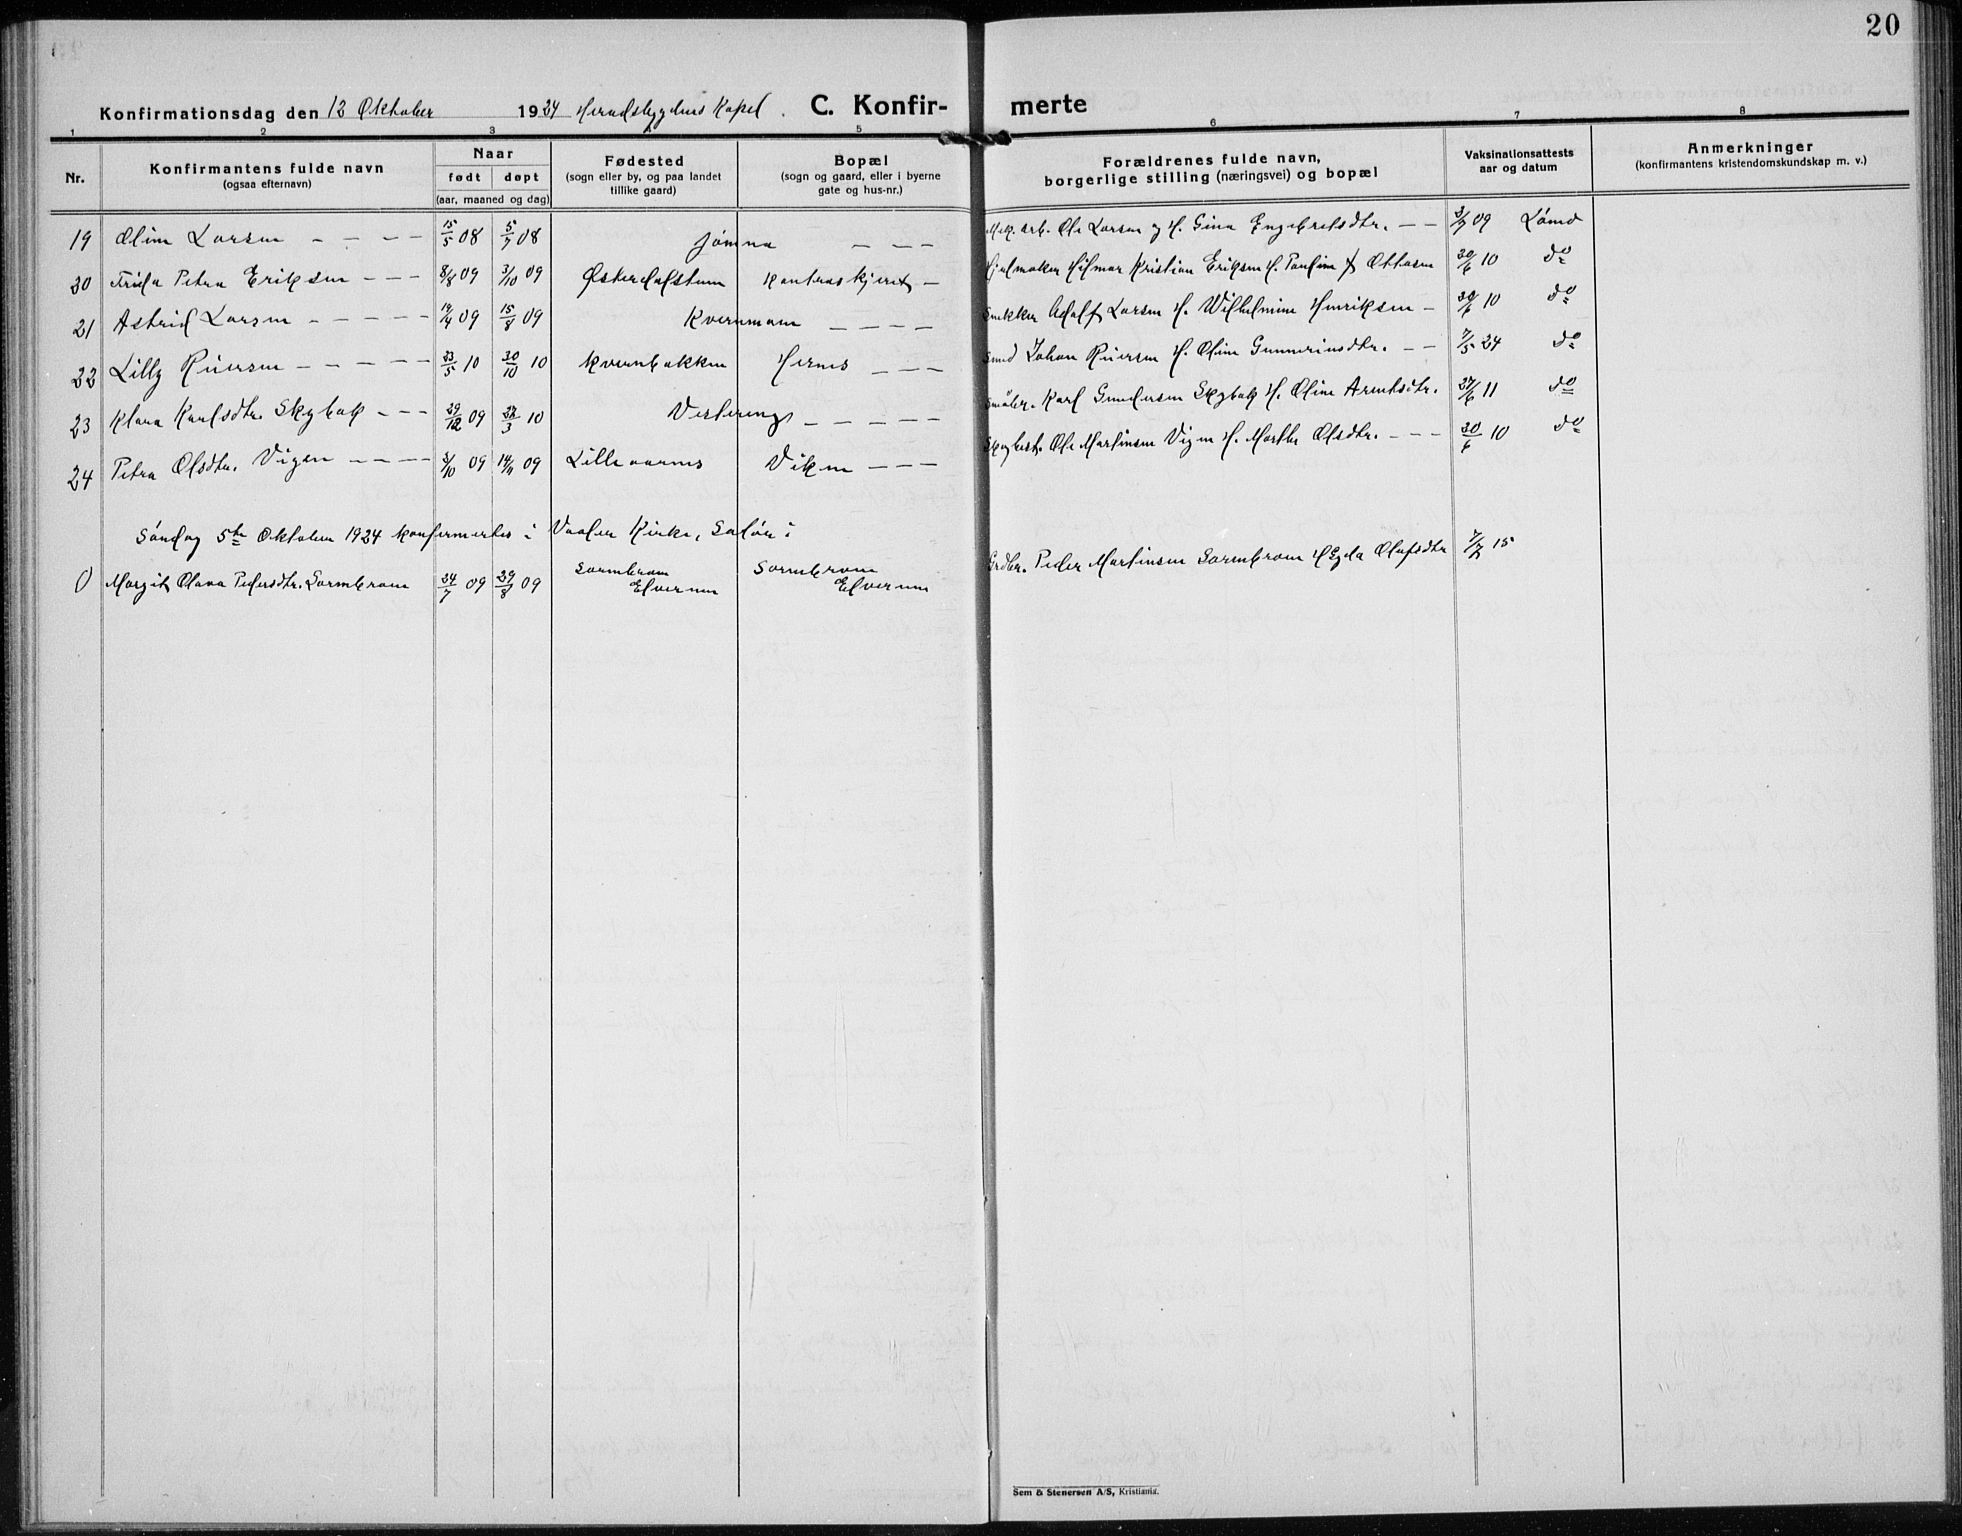 20
Konfirmationsdag den 12 Oktober 1924 Heradsbygdens Kapel. C. Konfir- merte
1 2 3 4 5 6 7 8
Nr. Konfirmantens fulde navn (ogsaa efternavn) Naar født døpt (aar, maaned og dag) Fødested (sogn eller by, og paa landet tillike gaard) Bopæl (sogn og gaard, eller i byerne gate og hus-nr.) Forældrenes fulde navn, borgerlige stilling (næringsvei) og bopæl Vaksinationsattests aar og datum Anmerkninger (konfirmantens kristendomskundskap m. v.)
19 Oline Larsen 15/5 08 5/7 08 Jømna Mek. arb. Ole Larsen og H. Gina Engebretsdtr. 3/7 09 Lømo
20 Frida Petra Eriksen 8/8 09 3/10 09 Østerdalstuen Hilmar Kristian Eriksen H. Pauline Ottosen 30/6 10 do
21 Astrid Larsen 19/4 09 15/8 09 Kvernmoen Snekker Adolf Larsen H. Wilhelmine Henriksen 30/6 10 do
22 Lilly 23/5 10 30/10 10 Kvernbakken Hernes Smed Johan H. Oline Gunneriusdtr. 7/5 24 do
23 Klara Karlsdtr. Skybak 29/12 09 28/3 10 Vestereng Karl Gundersen Skybak H. Oline Arntsdtr. 27/6 11 do
24 Petra Olsdtr. Vigen 3/10 09 14/11 09 Lilleaarnes Viken Ole Martinsen Vigen H. Marthe Olsdtr. 30/6 10 do
Søndag 5te Oktober 1924 konfirmertes i Vaaler Kirke, Solør:
() Margit Olava Pedersdtr. Sormbroen 24/7 09 29/8 09 Sormbroen Elverum Sormbroen Elverum Grdbr. Peder Martinsen Sormbroen H Olafsdtr 7/7 15
Sem & Stenersen A/S, Kristiania.